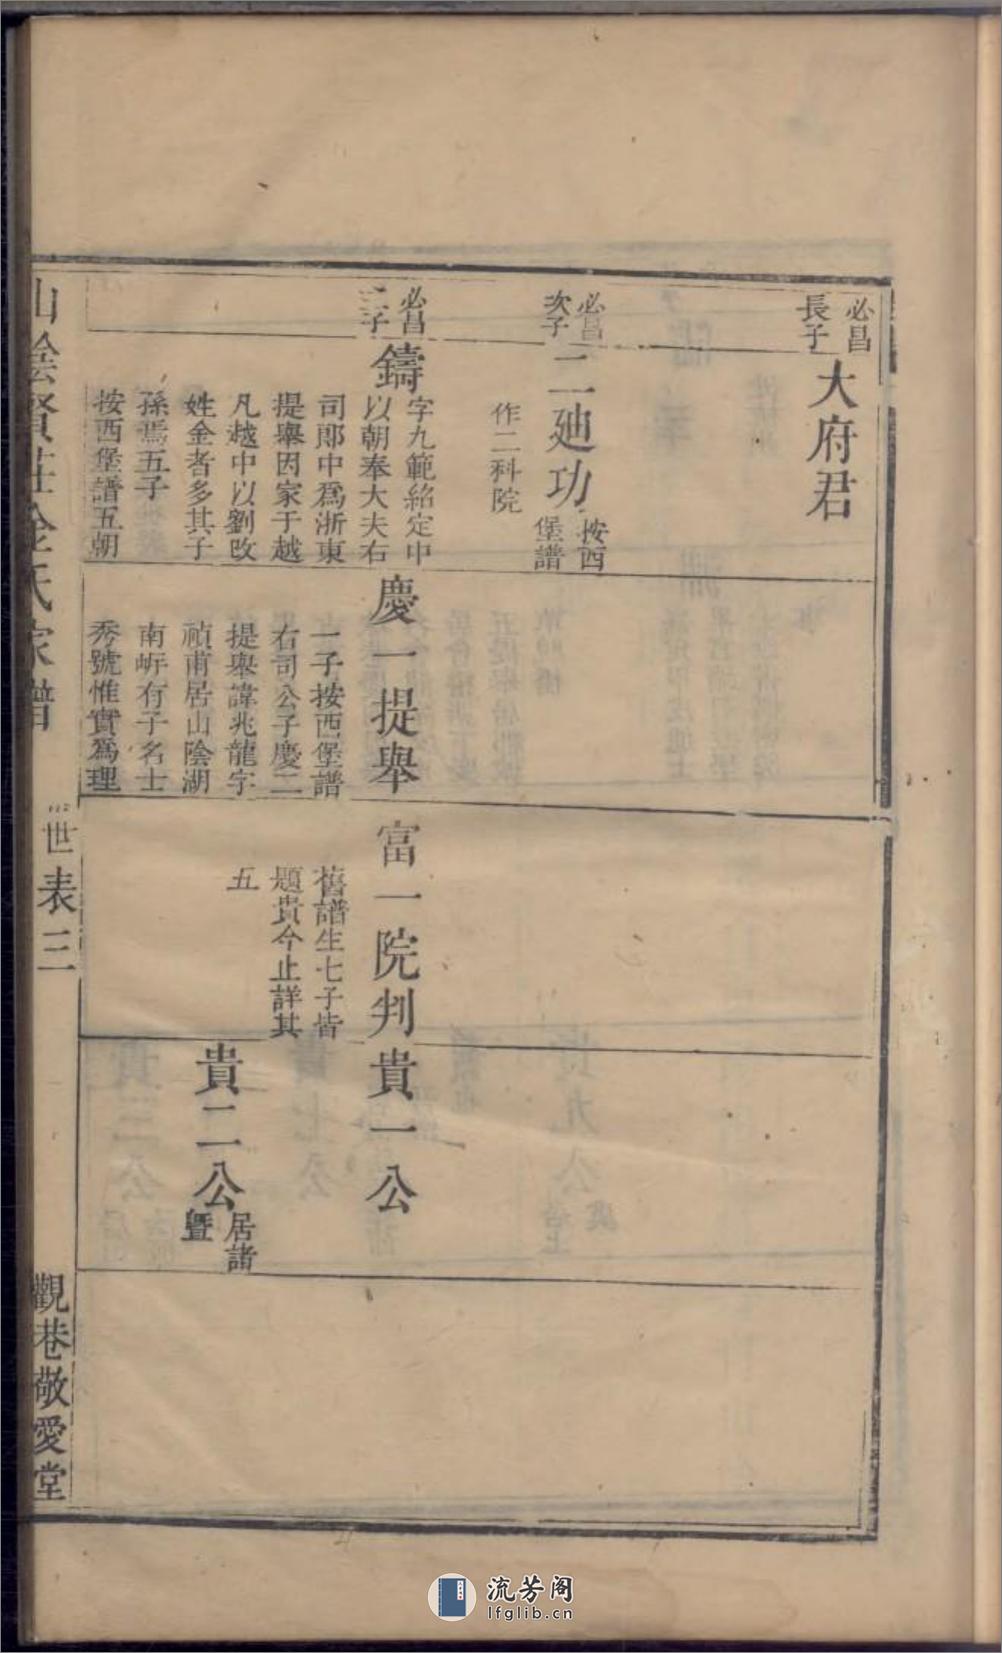 必昌
長子
大府君
必昌
次子
二廸功
按西
堡譜
作二科院
必昌
三子
鑄
字九範紹定中
以朝奉大夫右
司郎中爲浙東
提舉因家于越
凡越中以劉改
姓金者多其子
孫焉五子
按西堡譜五朝
慶一提舉
一子按西堡譜
右司公子慶二
提舉諱兆龍字
禎甫居山陰湖
南㟁有子名士
秀號惟實爲理
富一院判
舊譜生七子皆
題貴今止詳其
五
貴一公
貴二公
居諸
暨
山陰賢莊金氏家譜
世表三
觀巷敬愛堂
流芳阁
lfglib.cn